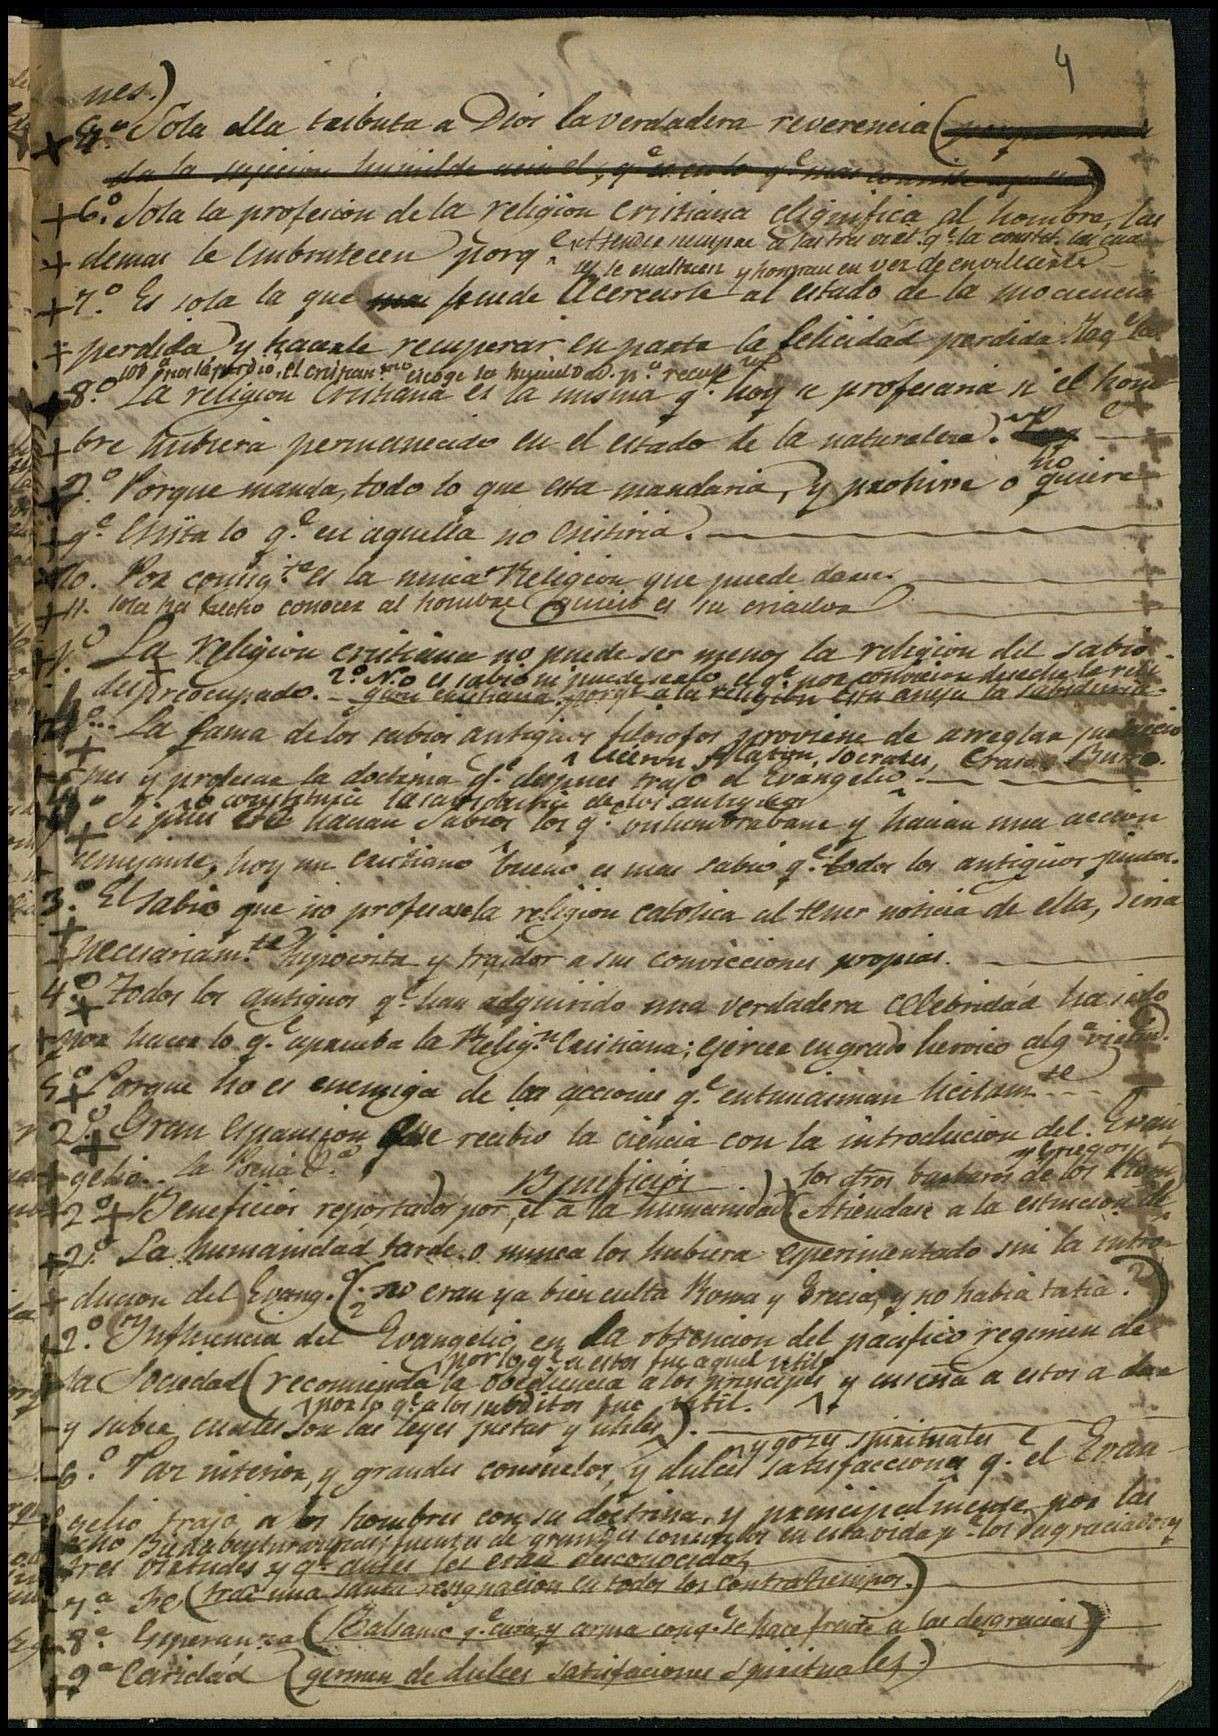 4
nes.)
4.ª Sola ella tributa a Dios la verdadera reverencia (
6.º Sola la profesion de la religion cristiana dignifica al hombre, las
demas le embrutecen porq.e
les se enaltecen y honran en vez de envilecerle
7.º Es sola la que puede acercarle al estado de la inociencia
perdida y hacerle recuperar en parte la felicidad perdida.
8.º La religion cristiana es la misma q.e hoy se profesaria si el hom
bre hubiera permanecido en el estado de la naturaleza.
9.º Porque manda, todo lo que esta mandaria, y prohive o no quiere
q.e exista lo q.e en aquella no existiria.
10. Por consig.te es la unica Religion que puede darse.
11. Sola ha hecho conocer al hombre quien es su criador
1.º La religion cristiana no puede ser menos la religion del sabio
despreocupado. 2.º No es sabio ni puede serlo el q.e por conviccion deseche la reli
gion cristiana, porq.e a la religion esta aneja la sabiduria.
La fama de los sabios antiguos filosofos proviene de arreglar
Ciceron, Platon, Socrates,
nes y profesar la doctrina q.e despues trajo el Evangelio.
constituia la sabiduria de los antiguos
Si pues hacian sabios los q.e vislumbraban y hacian una accion
semejante, hoy un cristiano bueno es mas sabio q.e todos los antiguos juntos.
3.º El sabio que no profesase la religion catolica al tener noticia de ella, seria
necesariam.te hipocrita y traidor a sus convicciones propias.
4.º Todos los antiguos q.e han adquirido una verdadera celebridad ha sido
por hacer lo q.e aprueba la Relig.n Cristiana; ejercer en grado heroico alg.a virtud.
5.º Porque no es enemiga de las acciones q.e entusiasman licitam.te
2.º Gran espansion que recibio la ciencia con la introducion del Evan
gelio. la Poesia &.ª
Beneficios
y Griegos
los dros barbaros de los Rom.
2.º Beneficios reportados por el a la humanidad (Atiendase a la estincion de
2.º La humanidad tarde o nunca los hubiera esperimentado sin la intro
ducion del Evang.º (¿no eran ya bien culta Roma y Grecia, y no habia tatia?)
2.º Influencia del Evangelio en la obtencion del pacifico regimen de
por lo q.e a estos fue aquel util
la Sociedad (recomienda la obediencia a los principes y enseña a estos a dar
por lo q.e a los subditos fue util.
y saber cuales son las leyes justas y utiles).
y gozes spirituales
6.º Paz interior, y grandes consuelos, y dulces satisfacciones q.e el Evan
gelio trajo a los hombres con su doctrina, y principalmente por las
ocho Bienabenturanzas, fuentes de grandes consuelos en esta vida p.a los desgraciados y
tres virtudes y q.e antes les eran desconocidos
7.ª Fe (trae una santa resignacion en todos los contratiempos.)
8.ª Esperanza (Balsamo q.e cura, y arma con q.e se hace frente a las desgracias)
9.ª Caridad (germen de dulces satisfaciones spirituales.)